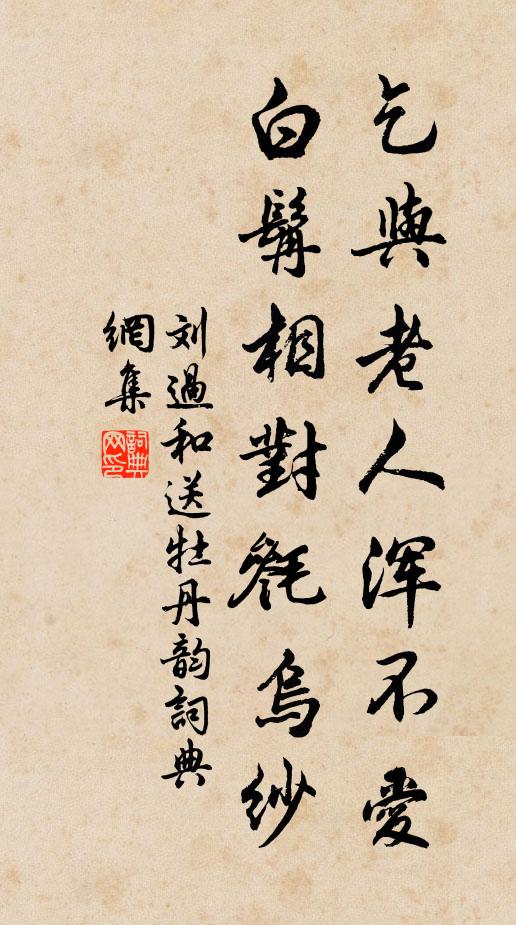 乞與老人浑不愛
白髯相對氊烏紗
刘過和送牡丹韵詞典
網集
詞典
网印